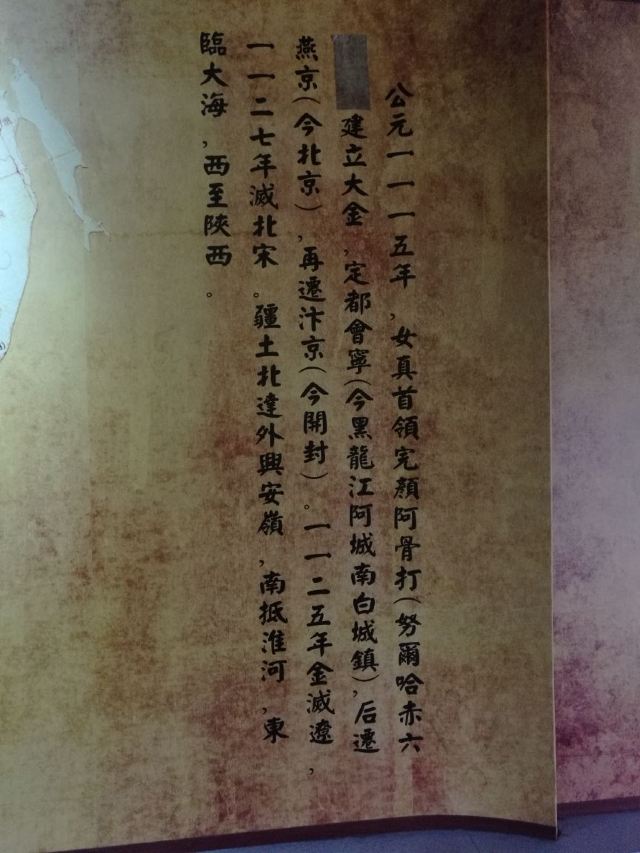 公元一一一五年，女真首領完顏阿骨打（努爾哈赤六
建立大金，定都會寧（今黑龍江阿城南白城鎮），后遷
燕京（今北京），再遷汴京（今開封）。一一二五年金滅遼，
一一二七年滅北宋。疆土北達外興安嶺，南抵淮河，東
臨大海，西至陝西。